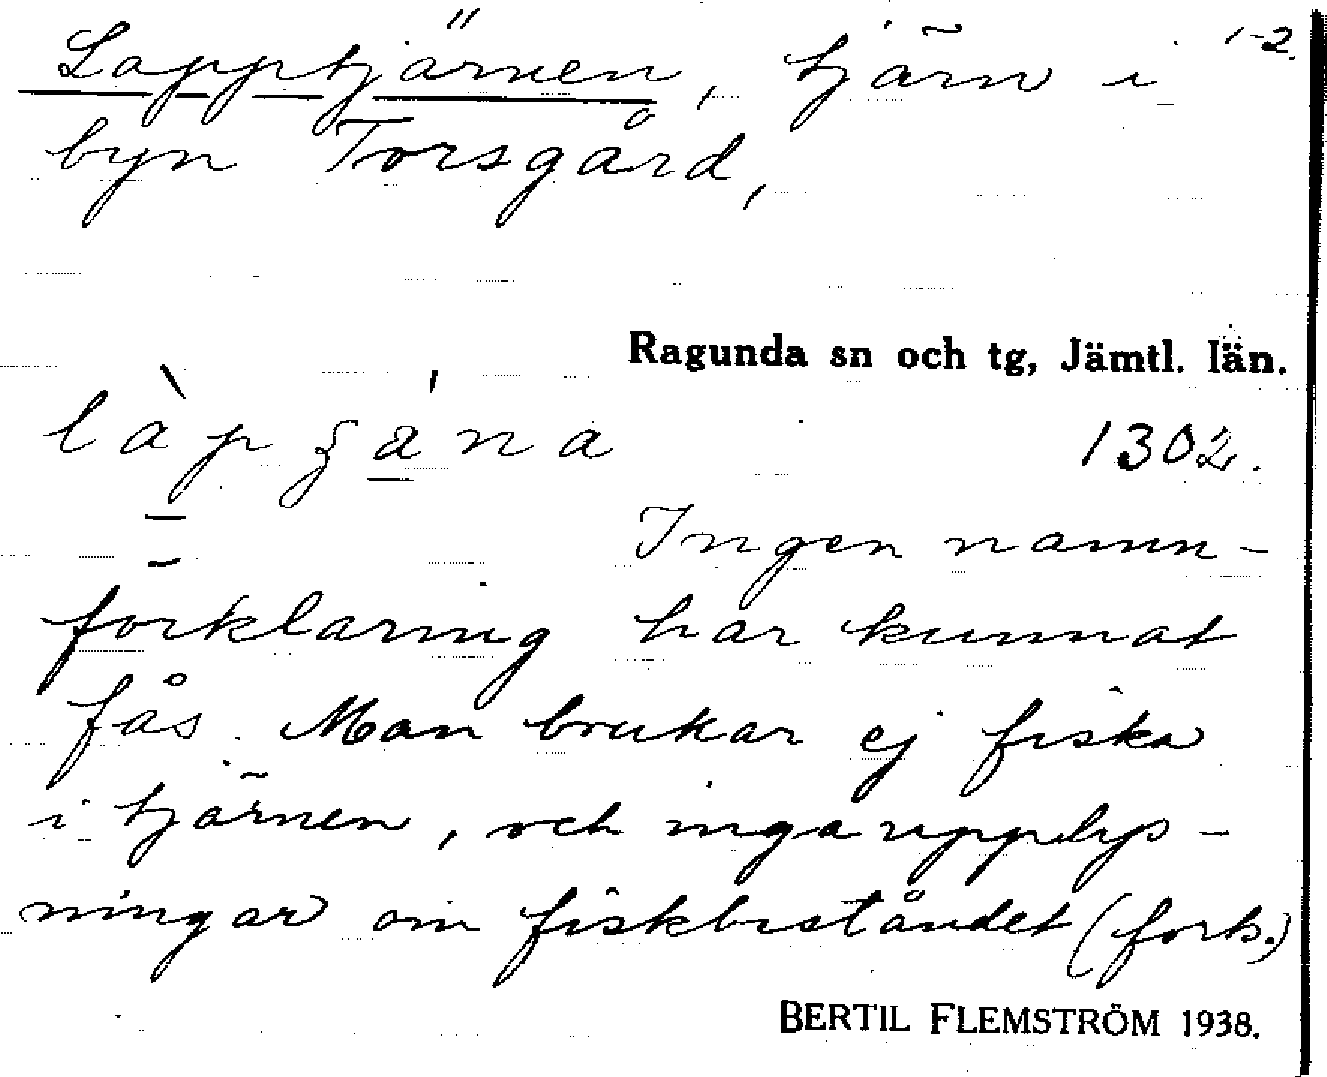 Lapptjärnen, tjärn i 1-2.
byn Torsgård,
Ragunda sn och tg, Jämtl. län.
làpʒána 1302.
Ingen namn-
förklaring har kunnat
fås. Man brukar ej fiska
i tjärnen, och inga upplys-
ningar om fiskbeståndet (forts.)
BERTIL FLEMSTRÖM 1938.